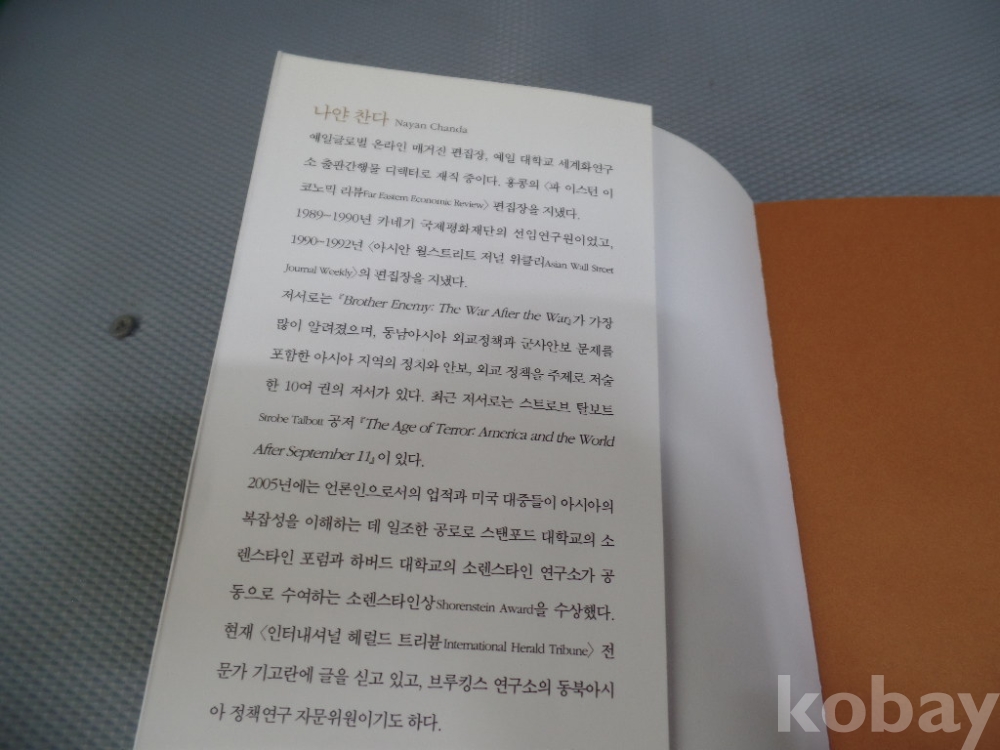 나얀 찬다 Nayan Chanda
예일글로벌 온라인 매거진 편집장, 예일 대학교 세계화연구
소 출판간행물 디렉터로 재직 중이다. 홍콩의 〈파 이스턴 이
코노믹 리뷰Far Eastern Economic Review〉 편집장을 지냈다.
1989-1990년 카네기 국제평화재단의 선임연구원이었고,
1990-1992년 〈아시안 월스트리트 저널 위클리Asian Wall Street
Journal Weekly〉의 편집장을 지냈다.
저서로는 『Brother Enemy: The War After the War』가 가장
많이 알려졌으며, 동남아시아 외교정책과 군사안보 문제를
포함한 아시아 지역의 정치와 안보, 외교 정책을 주제로 저술
한 10여 권의 저서가 있다. 최근 저서로는 스트로브 탈보트
Strobe Talbott 공저 『The Age of Terror: America and the World
After September 11』이 있다.
2005년에는 언론인으로서의 업적과 미국 대중들이 아시아의
복잡성을 이해하는 데 일조한 공로로 스탠포드 대학교의 쇼
렌스타인 포럼과 하버드 대학교의 쇼렌스타인 연구소가 공
동으로 수여하는 쇼렌스타인상Shorenstein Award을 수상했다.
현재 〈인터내셔널 헤럴드 트리뷴International Herald Tribune〉 전
문가 기고란에 글을 싣고 있고, 브루킹스 연구소의 동북아시
아 정책연구 자문위원이기도 하다.
kobay